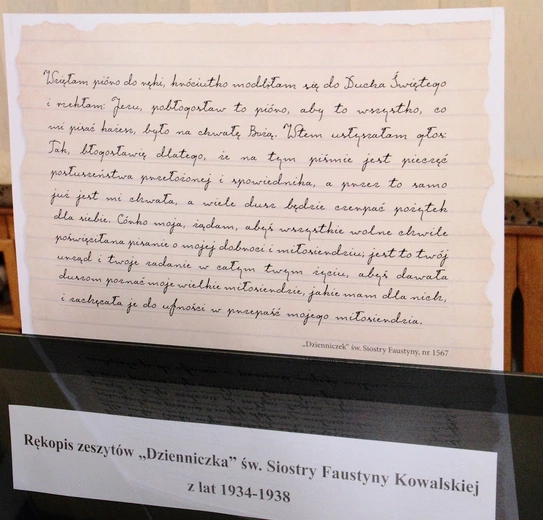 Wzięłam pióro do ręki, króciutko modliłam się do Ducha Świętego
i rzekłam: Jezu, pobłogosław to pióro, aby to wszystko, co
mi pisać każesz, było na chwałę Bożą. Wtem usłyszałam głos:
Tak, błogosławię dlatego, że na tym piśmie jest pieczęć
posłuszeństwa przełożonej i spowiednika, a przez to samo
już jest mi chwała, a wiele dusz będzie czerpać pożytek
dla siebie. Córko moja, żądam, abyś wszystkie wolne chwile
poświęcała pisaniu o mojej dobroci i miłosierdziu; jest to twój
urząd i twoje zadanie w całym twym życiu, abyś dawała
duszom poznać moje wielkie miłosierdzie, jakie mam dla nich,
i zachęcała je do ufności w przepaść mojego miłosierdzia.
„Dzienniczek” św. Siostry Faustyny, nr 1567
Rękopis zeszytów „Dzienniczka” św. Siostry Faustyny Kowalskiej
z lat 1934-1938